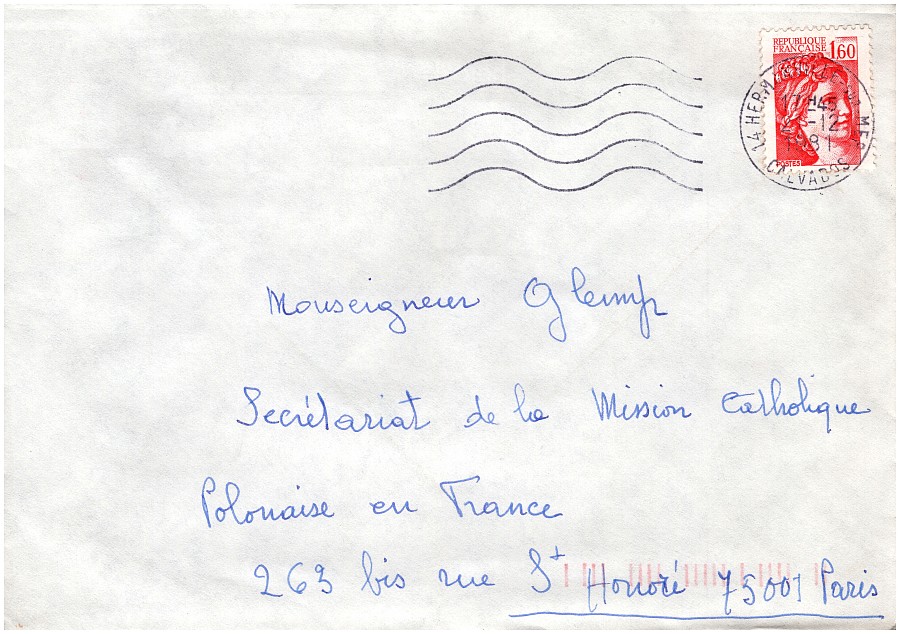 REPUBLIQUE
FRANÇAISE 1,60
POSTES
17H45
-12
1981
CALVADOS
Monseigneur Glemp
Secrétariat de la Mission Catholique
Polonaise en France
263 bis rue St Honoré 75001 Paris